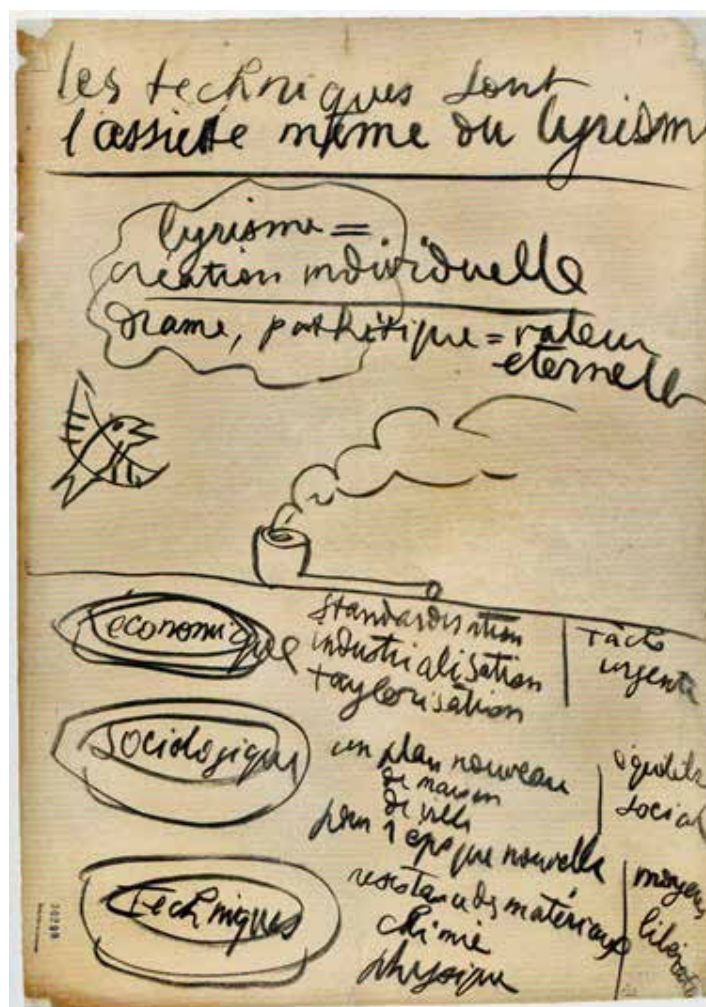 les techniques sont
l'assiette même du lyrism
lyrisme =
création individuelle
drame, pathétique = valeur
eternelle
économique
standardisation
industrialisation
taylorisation
tâche
urgente
sociologique
un plan nouveau
de maison
de ville
pour 1 époque nouvelle
social
Techniques
resistance des matériaux
chimie
physique
moyens
30289